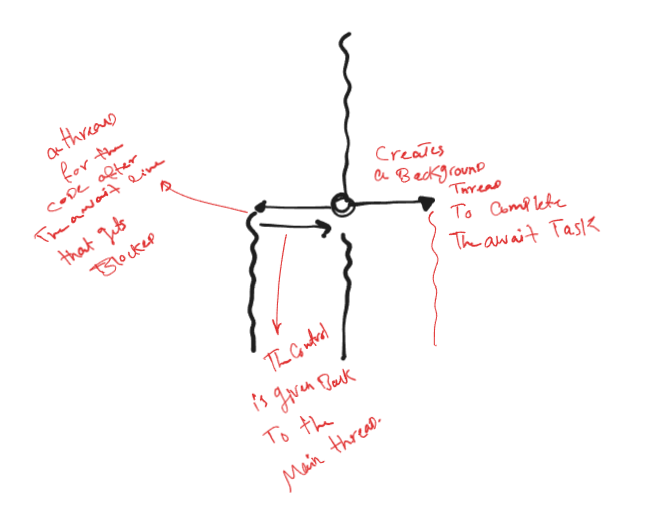 a thread
for the
code after
The await line
that gets
Blocked
Creates
a Background
Thread
To Complete
The await Task
The Control
is given Back
To the
Main thread.